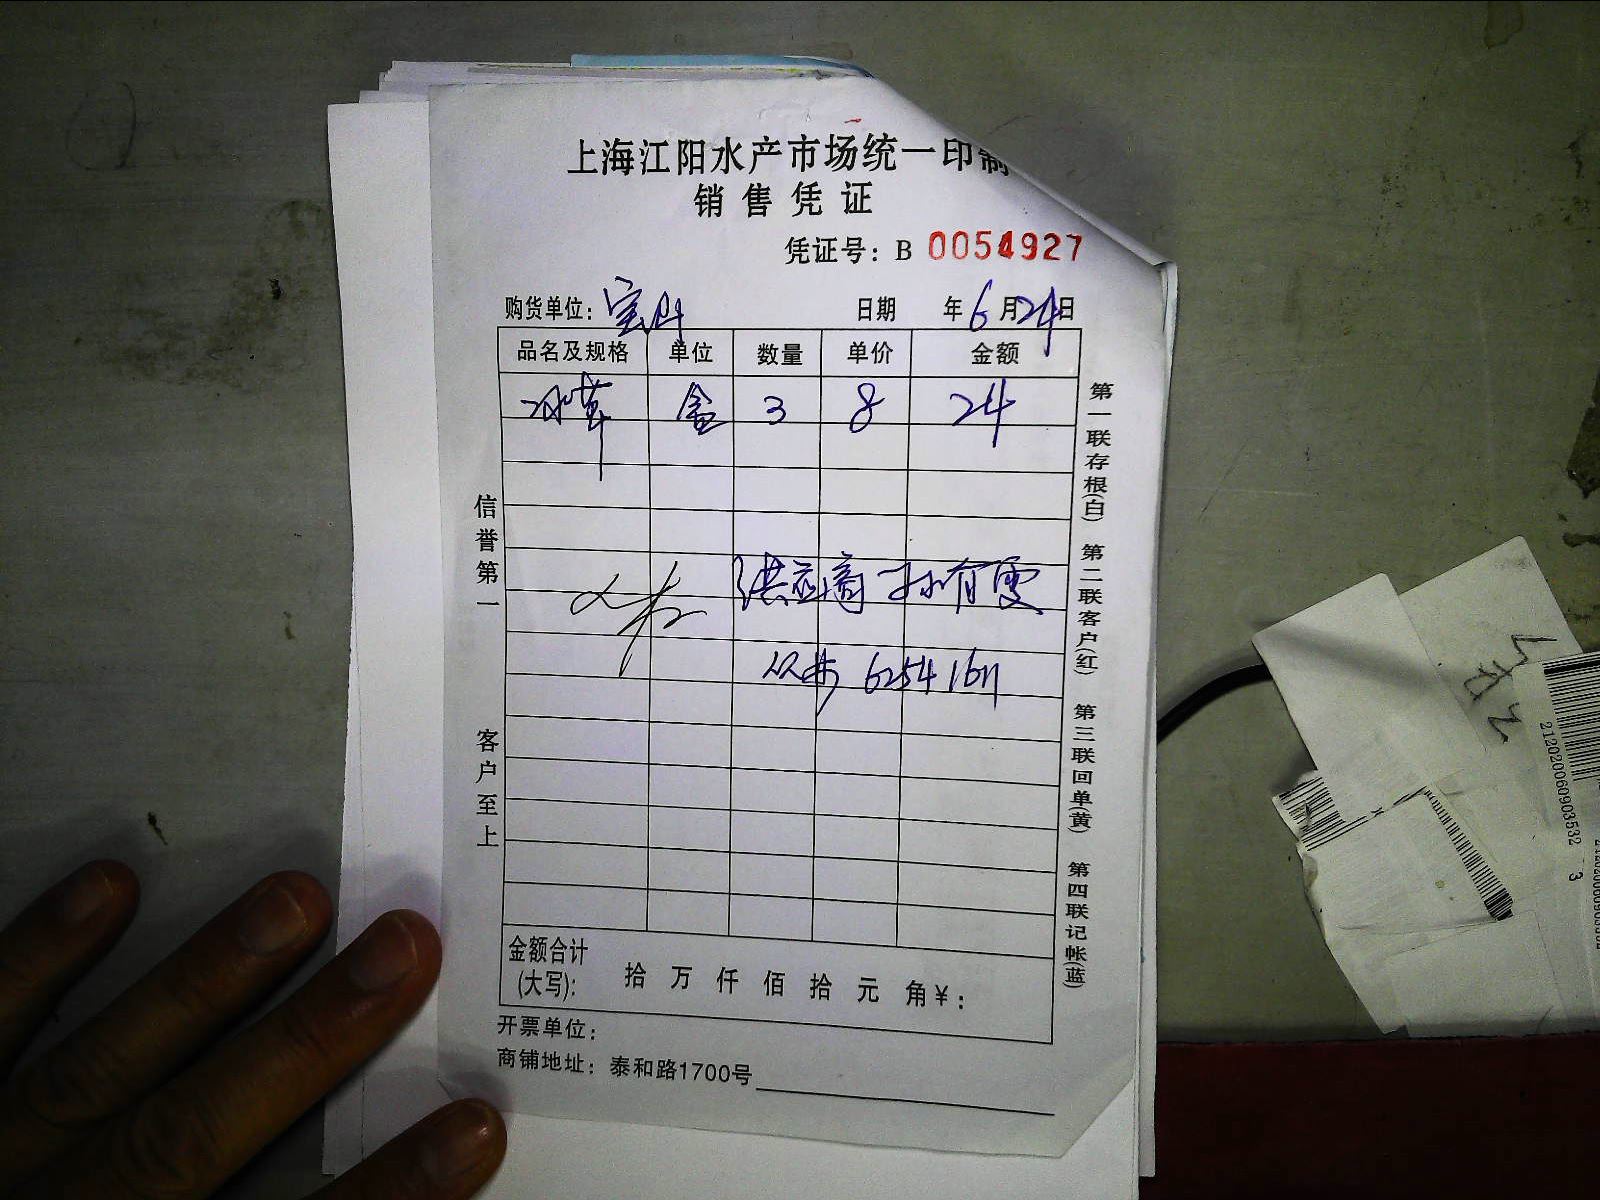 上海江阳水产市场统一印制
销售凭证
凭证号: B 0054927
购货单位: 宝山 日期 年 6 月 24 日
品名及规格 单位 数量 单价 金额
冰草 盒 3 8 24
供应商 孙有雯
6254 1611
信誉第一
客户至上
第一联存根(白)
第二联客户(红)
第三联回单(黄)
第四联记帐(蓝)
金额合计
(大写): 拾 万 仟 佰 拾 元 角 ¥:
开票单位:
商铺地址: 泰和路1700号
212020060903532
3